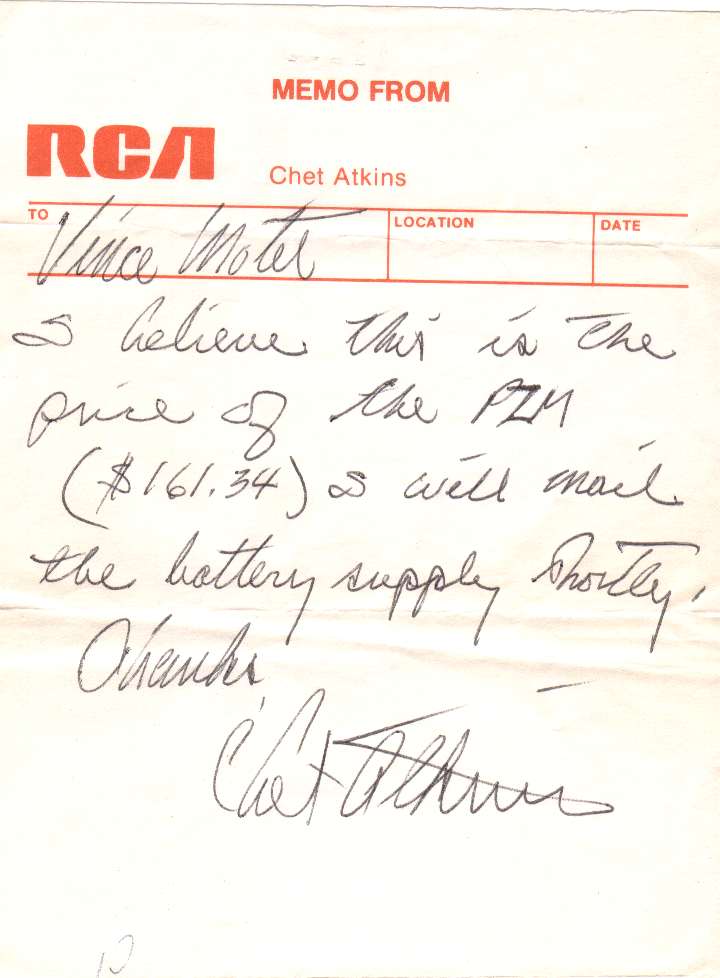 MEMO FROM
RCA
Chet Atkins
TO LOCATION DATE
Vince Motel
I believe this is the
price of the PZM
($161.34) I will mail
the battery supply shortly,
Thanks
Chet Atkins